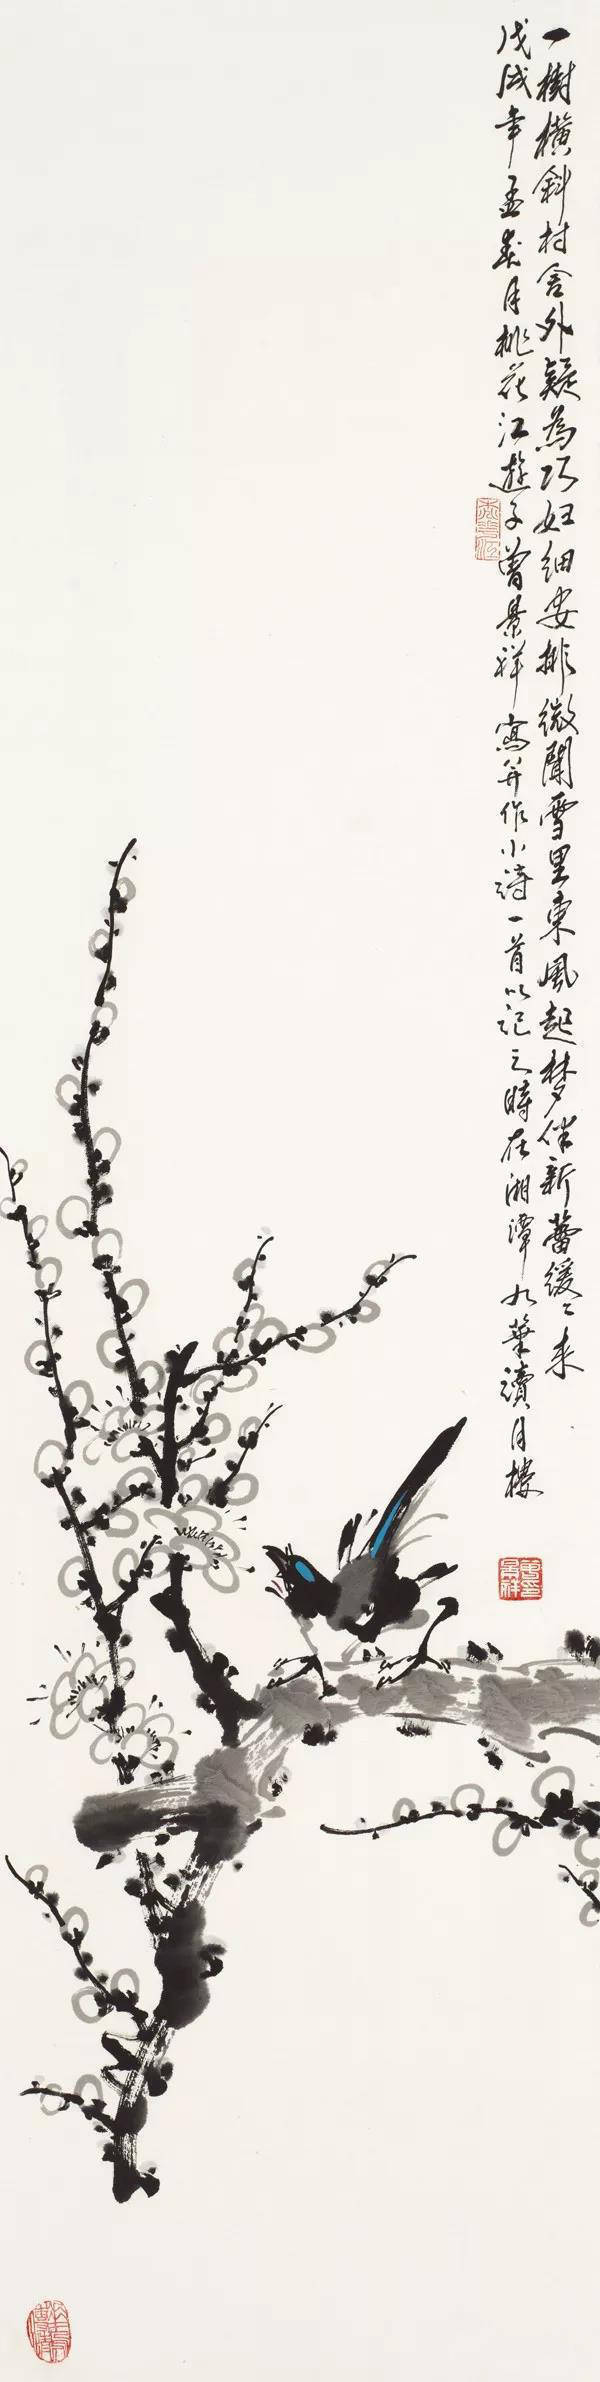 一樹橫斜村舍外疑為巧婦細安排微聞雪里東風起夢伴新蕾緩緩來
戊戌年孟春月桃花江遊子曾景祥寫并作小詩一首以記之時在湘潭九華讀月樓